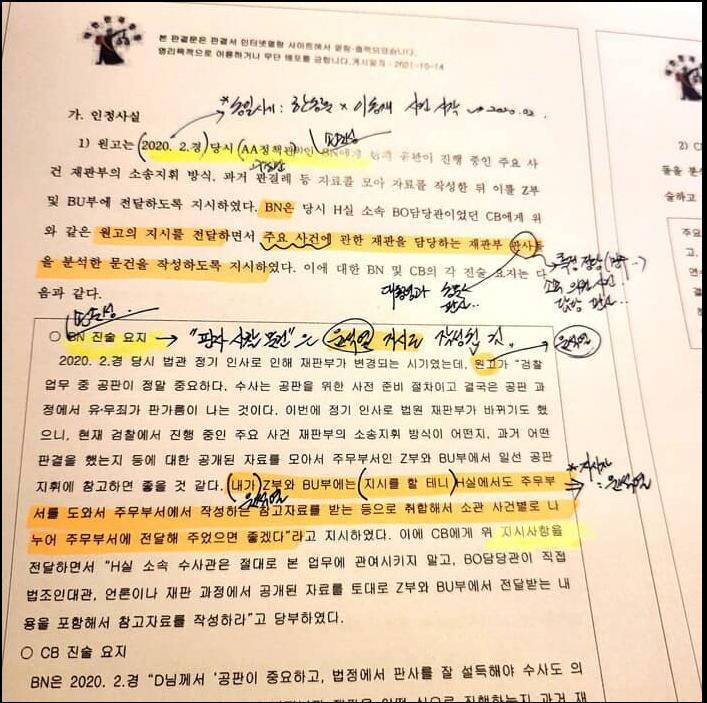 본 판결문은 판결서 인터넷열람 사이트에서 열람·출력되었습니다.
영리목적으로 이용하거나 무단 배포를 금합니다.게시일자 : 2021-10-14
가. 인정사실
1) 원고는 (2020. 2.경) 당시 (AA정책관)인 BN에게 공판이 진행 중인 주요 사
건 재판부의 소송지휘 방식, 과거 판결례 등 자료를 모아 자료를 작성한 뒤 이를 Z부
및 BU부에 전달하도록 지시하였다. BN은 당시 H실 소속 BO담당관이었던 CB에게 위
와 같은 원고의 지시를 전달하면서 주요 사건에 관한 재판을 담당하는 재판부 판사들
을 분석한 문건을 작성하도록 지시하였다. 이에 대한 BN 및 CB의 각 진술 요지는 다
음과 같다.
○ BN 진술 요지 → "판사 사찰 문건"은 윤석열 지시로 작성된 것.
2020. 2.경 당시 법관 정기 인사로 인해 재판부가 변경되는 시기였는데, 원고가 "검찰
윤석열
업무 중 공판이 정말 중요하다. 수사는 공판을 위한 사전 준비 절차이고 결국은 공판 과
정에서 유·무죄가 판가름이 나는 것이다. 이번에 정기 인사로 법원 재판부가 바뀌기도 했
으니, 현재 검찰에서 진행 중인 주요 사건 재판부의 소송지휘 방식이 어떤지, 과거 어떤
판결을 했는지 등에 대한 공개된 자료를 모아서 주무부서인 Z부와 BU부에서 일선 공판
지휘에 참고하면 좋을 것 같다. (내가) Z부와 BU부에는 (지시를 할 테니) H실에서도 주무부
윤석열
* 지시자 : 윤석열
서를 도와서 주무부서에서 작성하는 참고자료를 받는 등으로 취합해서 소관 사건별로 나
누어 주무부서에 전달해 주었으면 좋겠다"라고 지시하였다. 이에 CB에게 위 지시사항을
전달하면서 "H실 소속 수사관은 절대로 본 업무에 관여시키지 말고, BO담당관이 직접
법조인대관, 언론이나 재판 과정에서 공개된 자료를 토대로 Z부와 BU부에서 전달받는 내
용을 포함해서 참고자료를 작성하라"고 당부하였다.
○ CB 진술 요지
BN은 2020. 2.경 "D님께서 '공판이 중요하고, 법정에서 판사를 잘 설득해야 수사도 의
2) C